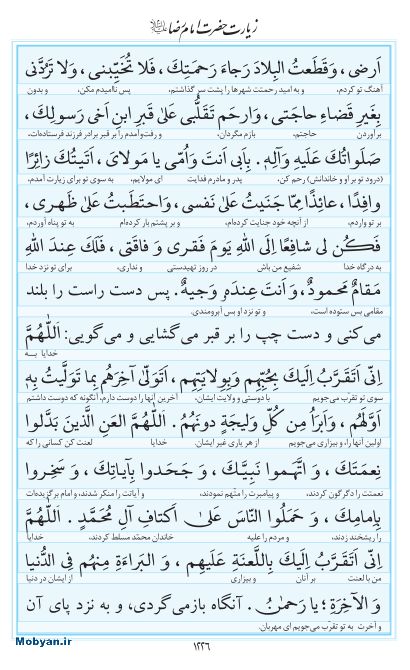 زیارت حضرت امام رضا علیه‌السلام
اَرضی ، وَقَطَعتُ البِلادَ رَجاءَ رَحمَتِكَ ، فَلا تُخَیِّبنی ، وَلا تَرُدَّنی
آهنگ تو کردم، و به امید رحمتت شهرها را پشت سر گذاشتم، پس ناامیدم مکن، و بدون
بِغَیرِ قَضاءِ حاجَتی ، وَارحَم تَقَلُّبی عَلیٰ قَبرِ ابنِ اَخی رَسولِكَ ،
برآوردن حاجتم، بازم مگردان، و رفت‌وآمدم را بر قبر برادر فرزند فرستاده‌ات،
صَلَواتُكَ عَلَیهِ وَآلِهِ . بِاَبی اَنتَ وَاُمّی یا مَولایَ ، اَتَیتُكَ زائِرًا
(درود تو بر او و خاندانش) رحم کن، پدر و مادرم فدایت ای مولایم، به سوی تو برای زیارت آمدم،
وافِدًا ، عائِذًا مِمّا جَنَیتُ عَلیٰ نَفسی ، وَاحتَطَبتُ عَلیٰ ظَهری ،
بر تو واردم، از آنچه خود جنایت کرده‌ام، و بر پشتم بار کرده‌ام به تو پناه آوردم،
فَکُن لی شافِعًا اِلَی اللهِ یَومَ فَقری وَ فاقَتی ، فَلَكَ عِندَ اللهِ
به درگاه خدا شفیع من باش در روز تهیدستی و نداری، برای تو نزد خدا
مَقامٌ مَحمودٌ ، وَ اَنتَ عِندَهُ وَجیهٌ . پس دست راست را بلند
مقامی بس ستوده است، و تو نزد او بس آبرومندی.
می کنی و دست چپ را بر قبر می‌گشایی و می‌گویی: اَللّٰهُمَّ
خدایا بـه
اِنّی اَتَقَرَّبُ اِلَیكَ بِحُبِّهِم وَبِوِلایَتِهِم ، اَتَوَلّیٰ آخِرَهُم بِما تَوَلَّیتُ بِهِ
سوی تو تقرّب می‌جویم با دوستی و ولایت ایشان، آخرین آنها را دوست دارم، آنگونه که دوست داشتم
اَوَّلَهُم ، وَ اَبرَأُ مِن کُلِّ وَلیجَةٍ دونَهُم . اَللّٰهُمَّ العَنِ الَّذینَ بَدَّلوا
اولین آنها را، و بیزاری می‌جویم از هر یاری غیر ایشان. خدایا لعنت کن کسانی را که
نِعمَتَكَ ، وَ اتَّهَموا نَبِیَّكَ ، وَ جَحَدوا بِآیاتِكَ ، وَ سَخِروا
نعمتت را دگرگون کردند، و پیامبرت را متّهم نمودند، و آیاتت را منکر شدند، و امام برگزیده‌ات
بِاِمامِكَ ، وَ حَمَلُوا النّاسَ عَلیٰ اَکتافِ آلِ مُحَمَّدٍ . اَللّٰهُمَّ
را ریشخند زدند، و مردم را علیه خاندان محمّد مسلط کردند، خدایا
اِنّی اَتَقَرَّبُ اِلَیكَ بِاللَّعنَةِ عَلَیهِم ، وَ البَراءَةِ مِنهُم فِی الدُّنیا
من با لعنت بر آنان و بیزاری از ایشان در دنیا
وَ الآخِرَةِ ؛ یا رَحمٰنُ . آنگاه بازمی‌گردی، و به نزد پای آن
و آخرت به تو تقرّب می‌جویم ای مهربان.
۱۲۲۶
Mobyan.ir